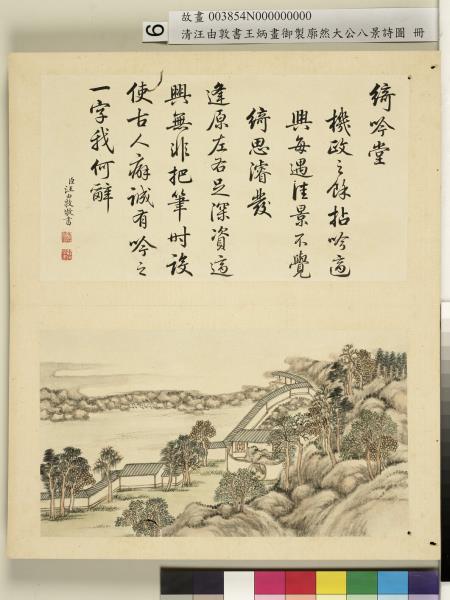 故畫 003854N000000000
清汪由敦書王炳畫御製廓然大公八景詩圖 冊
綺吟堂
機政之餘拈吟適
興每遇佳景不覺
綺思濬發
逢原左右足深資適
興無非把筆時設
使古人癖誠有吟之
一字我何辭
臣汪由敦敬書